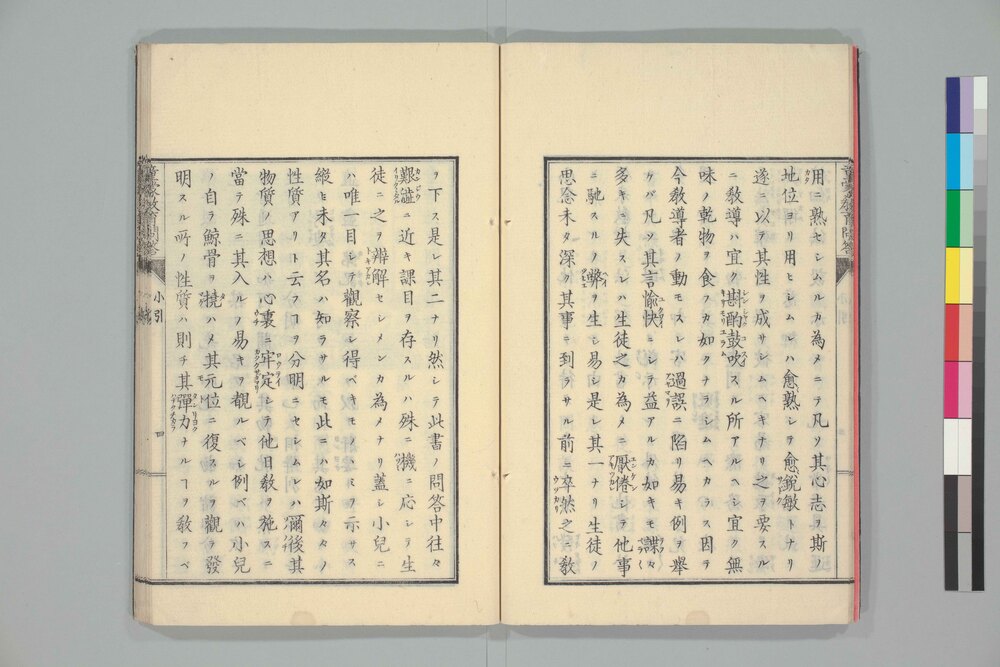 用ニ熟セシムルカ為メニテ凡ソ其心志ヲ斯ノ
地位ヨリ用ヒシムレハ愈熟シテ愈鋭敏トナリ
遂ニ以テ其性ヲ成サシムヘキナリ之ヲ要スル
ニ敎導ハ宜ク斟酌鼓吹スル所アルヘシ宜ク無
味ノ乾物ヲ食フカ如クナラシムヘカラス因テ
今敎導者ノ動モスレハ過誤ニ陷リ易キ例ヲ舉
ケバ凡ソ其言愉快ニシテ益アルカ如キモ諜々
多キニ失スレハ生徒之カ為メニ厭倦シテ他事
ニ馳スルノ弊ヲ生シ易シ是レ其一ナリ生徒ノ
思念未タ深ク其事ニ到ラサル前ニ卒然之ニ敎
ヲ下ス是レ其二ナリ然シテ此書ノ問答中往々
艱澁ニ近キ課目ヲ存スルハ殊ニ機ニ応シテ生
徒ニ之ヲ辨解セシメンカ為メナリ蓋シ小兒ニ
ハ唯一目シテ觀察シ得ベキモノノミヲ示サス
縱ヒ未タ其名ハ知ラサルモ此ニハ如斯々々ノ
性質アリト云フヿヲ分明ニセシムレハ爾後其
物質ノ思想ハ心裏ニ牢定シテ他日敎ヲ施スニ
當テ殊ニ其入ルノ易キヲ覩ルベシ例ベハ小兒
ノ自ラ鯨骨ヲ撓ハメ其元位ニ復スルヲ觀ラ發
明スル所ノ性質ハ則チ其彈力ナルヿヲ敎フベ
小引
四